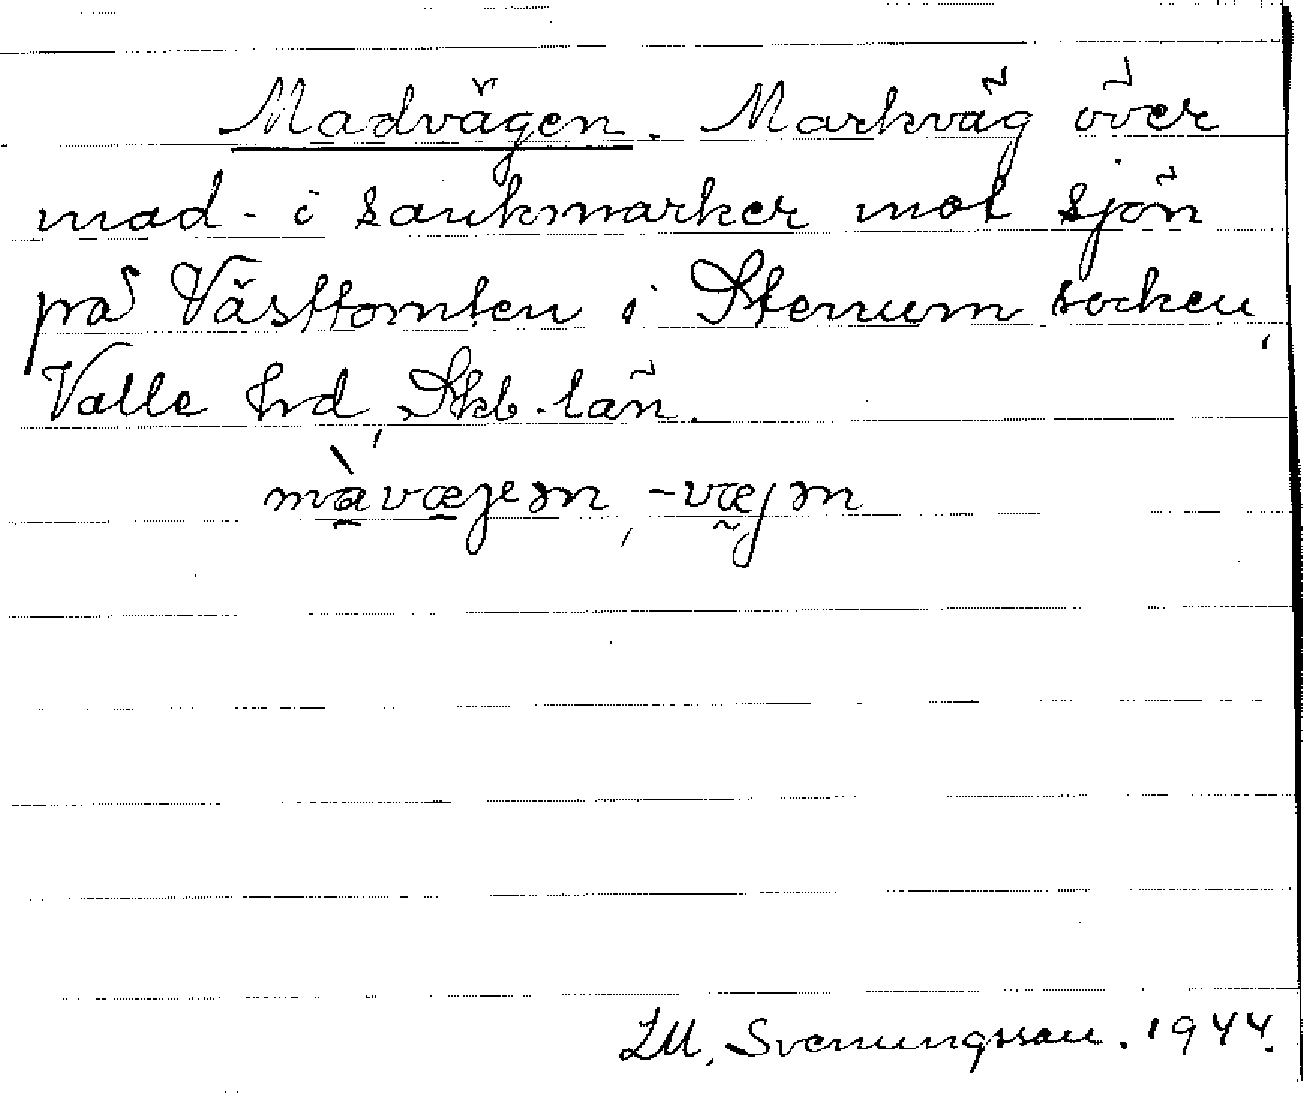 Madvägen. Markväg över
mad- i sankmarker mot sjön
på Västtomten i Stenum socken,
Valle hrd, Skb. län.
màvæjen, -væjn
LM, Svenungsson. 1944.